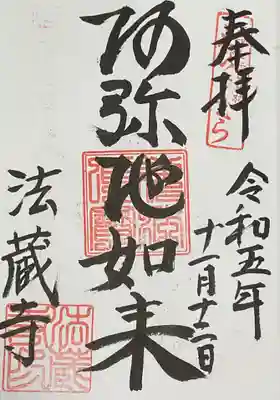 奉拝
令和五年
十一月十二日
阿弥陀如来
法蔵寺